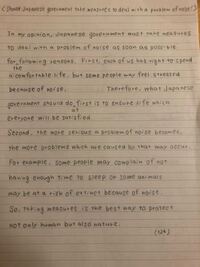 (Should Japanese government take measures to deal with a problem of noise?)
In my opinion, Japanese government must take measures
to deal with a problem of noise as soon as possible
for following reasons. First, each of us has right to spend
the
a comfortable life, but some people may feel stressed
because of noise. Therefore, what Japanese
government should do, first is to ensure life which
at
everyone will be satisfied.
Second, the more serious a problem of noise becomes,
the more problems which are caused by that may occur.
For example, some people may complain of not
having enough time to sleep or some animals
may be at a risk of extinct because of noise.
So, taking measures is the best way to protect
not only human but also nature.